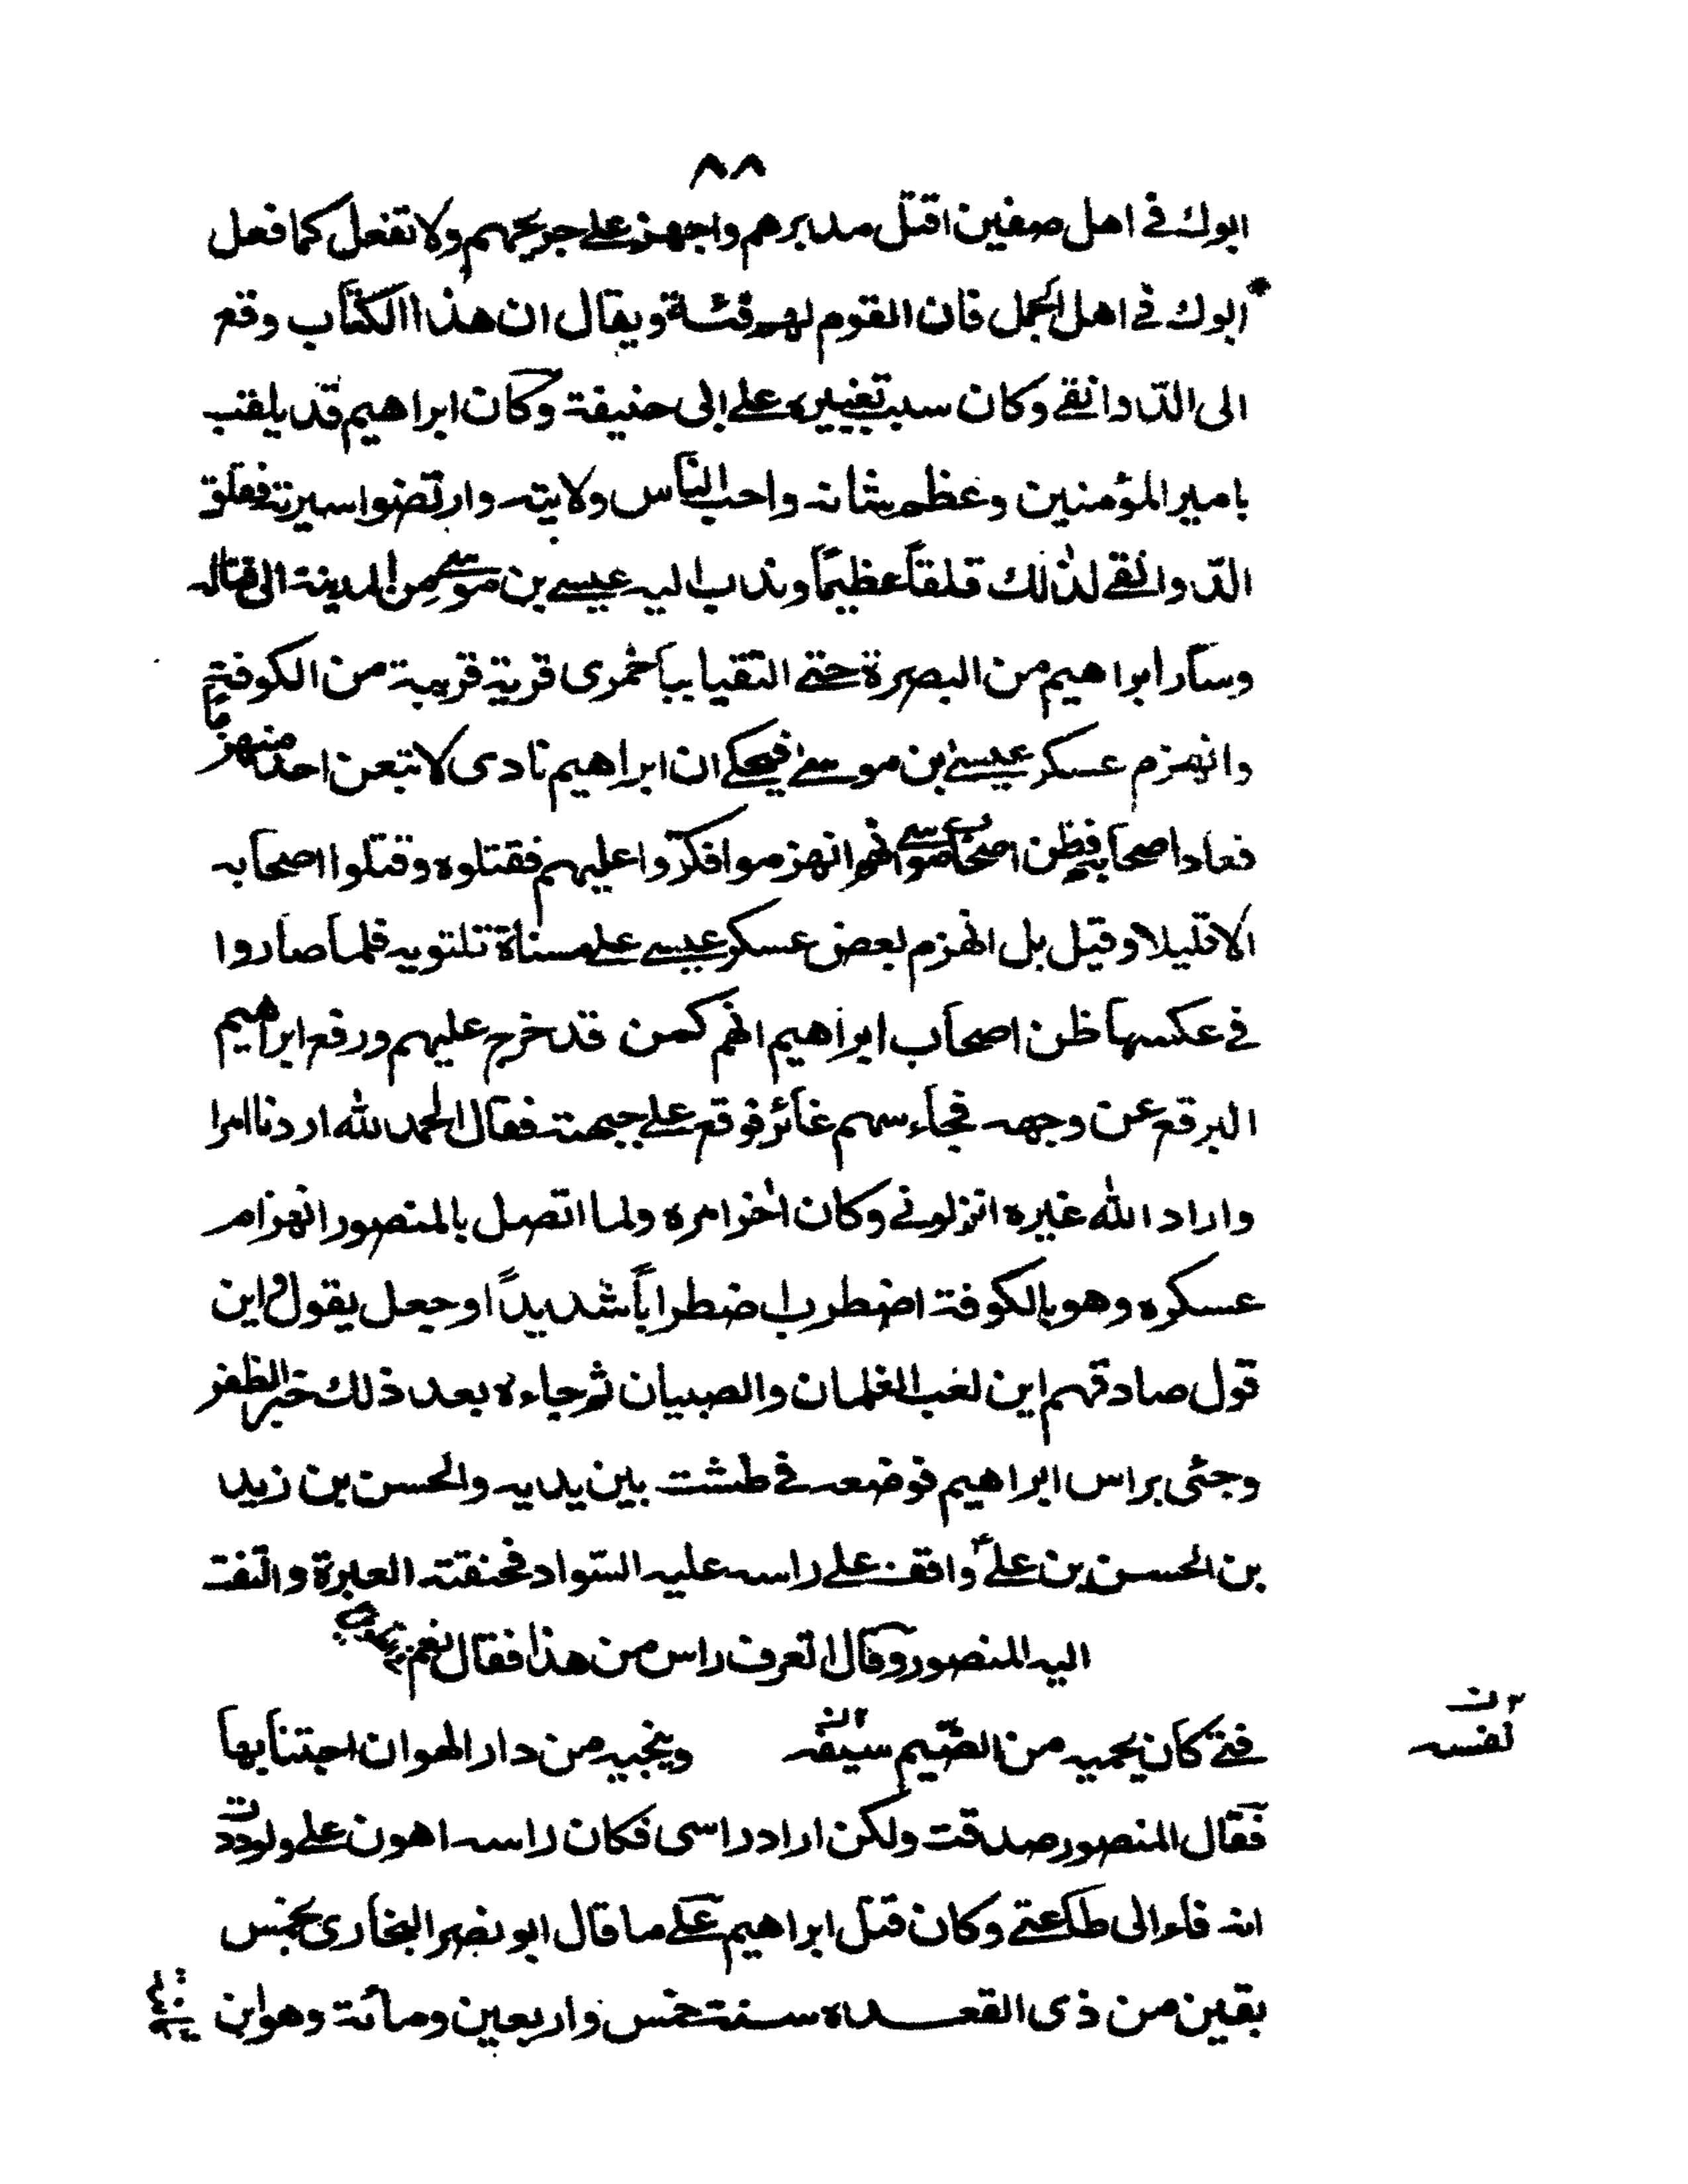 ٨٨
ابوك فى اهل صفين اقتل مدبرهم واجهز على جريحهم ولا تفعل كما فعل
ابوك فى اهل الجمل فان القوم لهم فئة ويقال ان هذا الكتاب وقع
الى الدوانقى وكان سبب تغييره على ابى حنيفة وكان ابراهيم قد يلقب
بامير المؤمنين وعظم شانه واحب الناس ولايته وارتضوا سيرته فقلق
الدوانقى لذلك قلقاً عظيماً وندب اليه عيسى بن موسى من المدينة الى قتاله
وسار ابراهيم من البصرة حتى التقيا بباخمرى قرية قريبة من الكوفة
وانهزم عسكر عيسى بن موسى فيحكى ان ابراهيم نادى لا تتبعن احد منهزما
فعاد اصحابه فظن اصحاب موسى انهم انهزموا فكروا عليهم فقتلوه وقتلوا اصحابه
الا قليلا وقيل بل انهزم بعض عسكر عيسى على مسناة تلتويه فلما صاروا
فى عكسها ظن اصحاب ابراهيم انهم كمن قد خرج عليهم ورفع ابراهيم
البرقع عن وجهه فجاء سهم غائر فوقع على جبهته فقال الحمد لله اردنا امرا
واراد الله غيره انزلونى وكان اخر امره ولما اتصل بالمنصور انهزام
عسكره وهو بالكوفة اضطرب اضطراباً شديداً وجعل يقول واين
قول صادقهم اين لعب الغلمان والصبيان ثم جاءه بعد ذلك خبر الظفر
وجئى براس ابراهيم فوضعه فى طشت بين يديه والحسن بن زيد
بن الحسن بن على واقف على راسه عليه السواد فخنقته العبرة والتفت
اليه المنصور وقال اتعرف راس من هذا فقال نعم
فتى كان يحميه من الضيم سيفه وينجيه من دار الهوان اجتنابها
نفسه ن
فقال المنصور صدقت ولكن اراد راسى فكان راسه اهون على ولوددت
انه فاء الى طاعتى وكان قتل ابراهيم على ما قال ابو نصر البخارى لخمس
بقين من ذى القعده سنة خمس واربعين ومائة وهو ابن